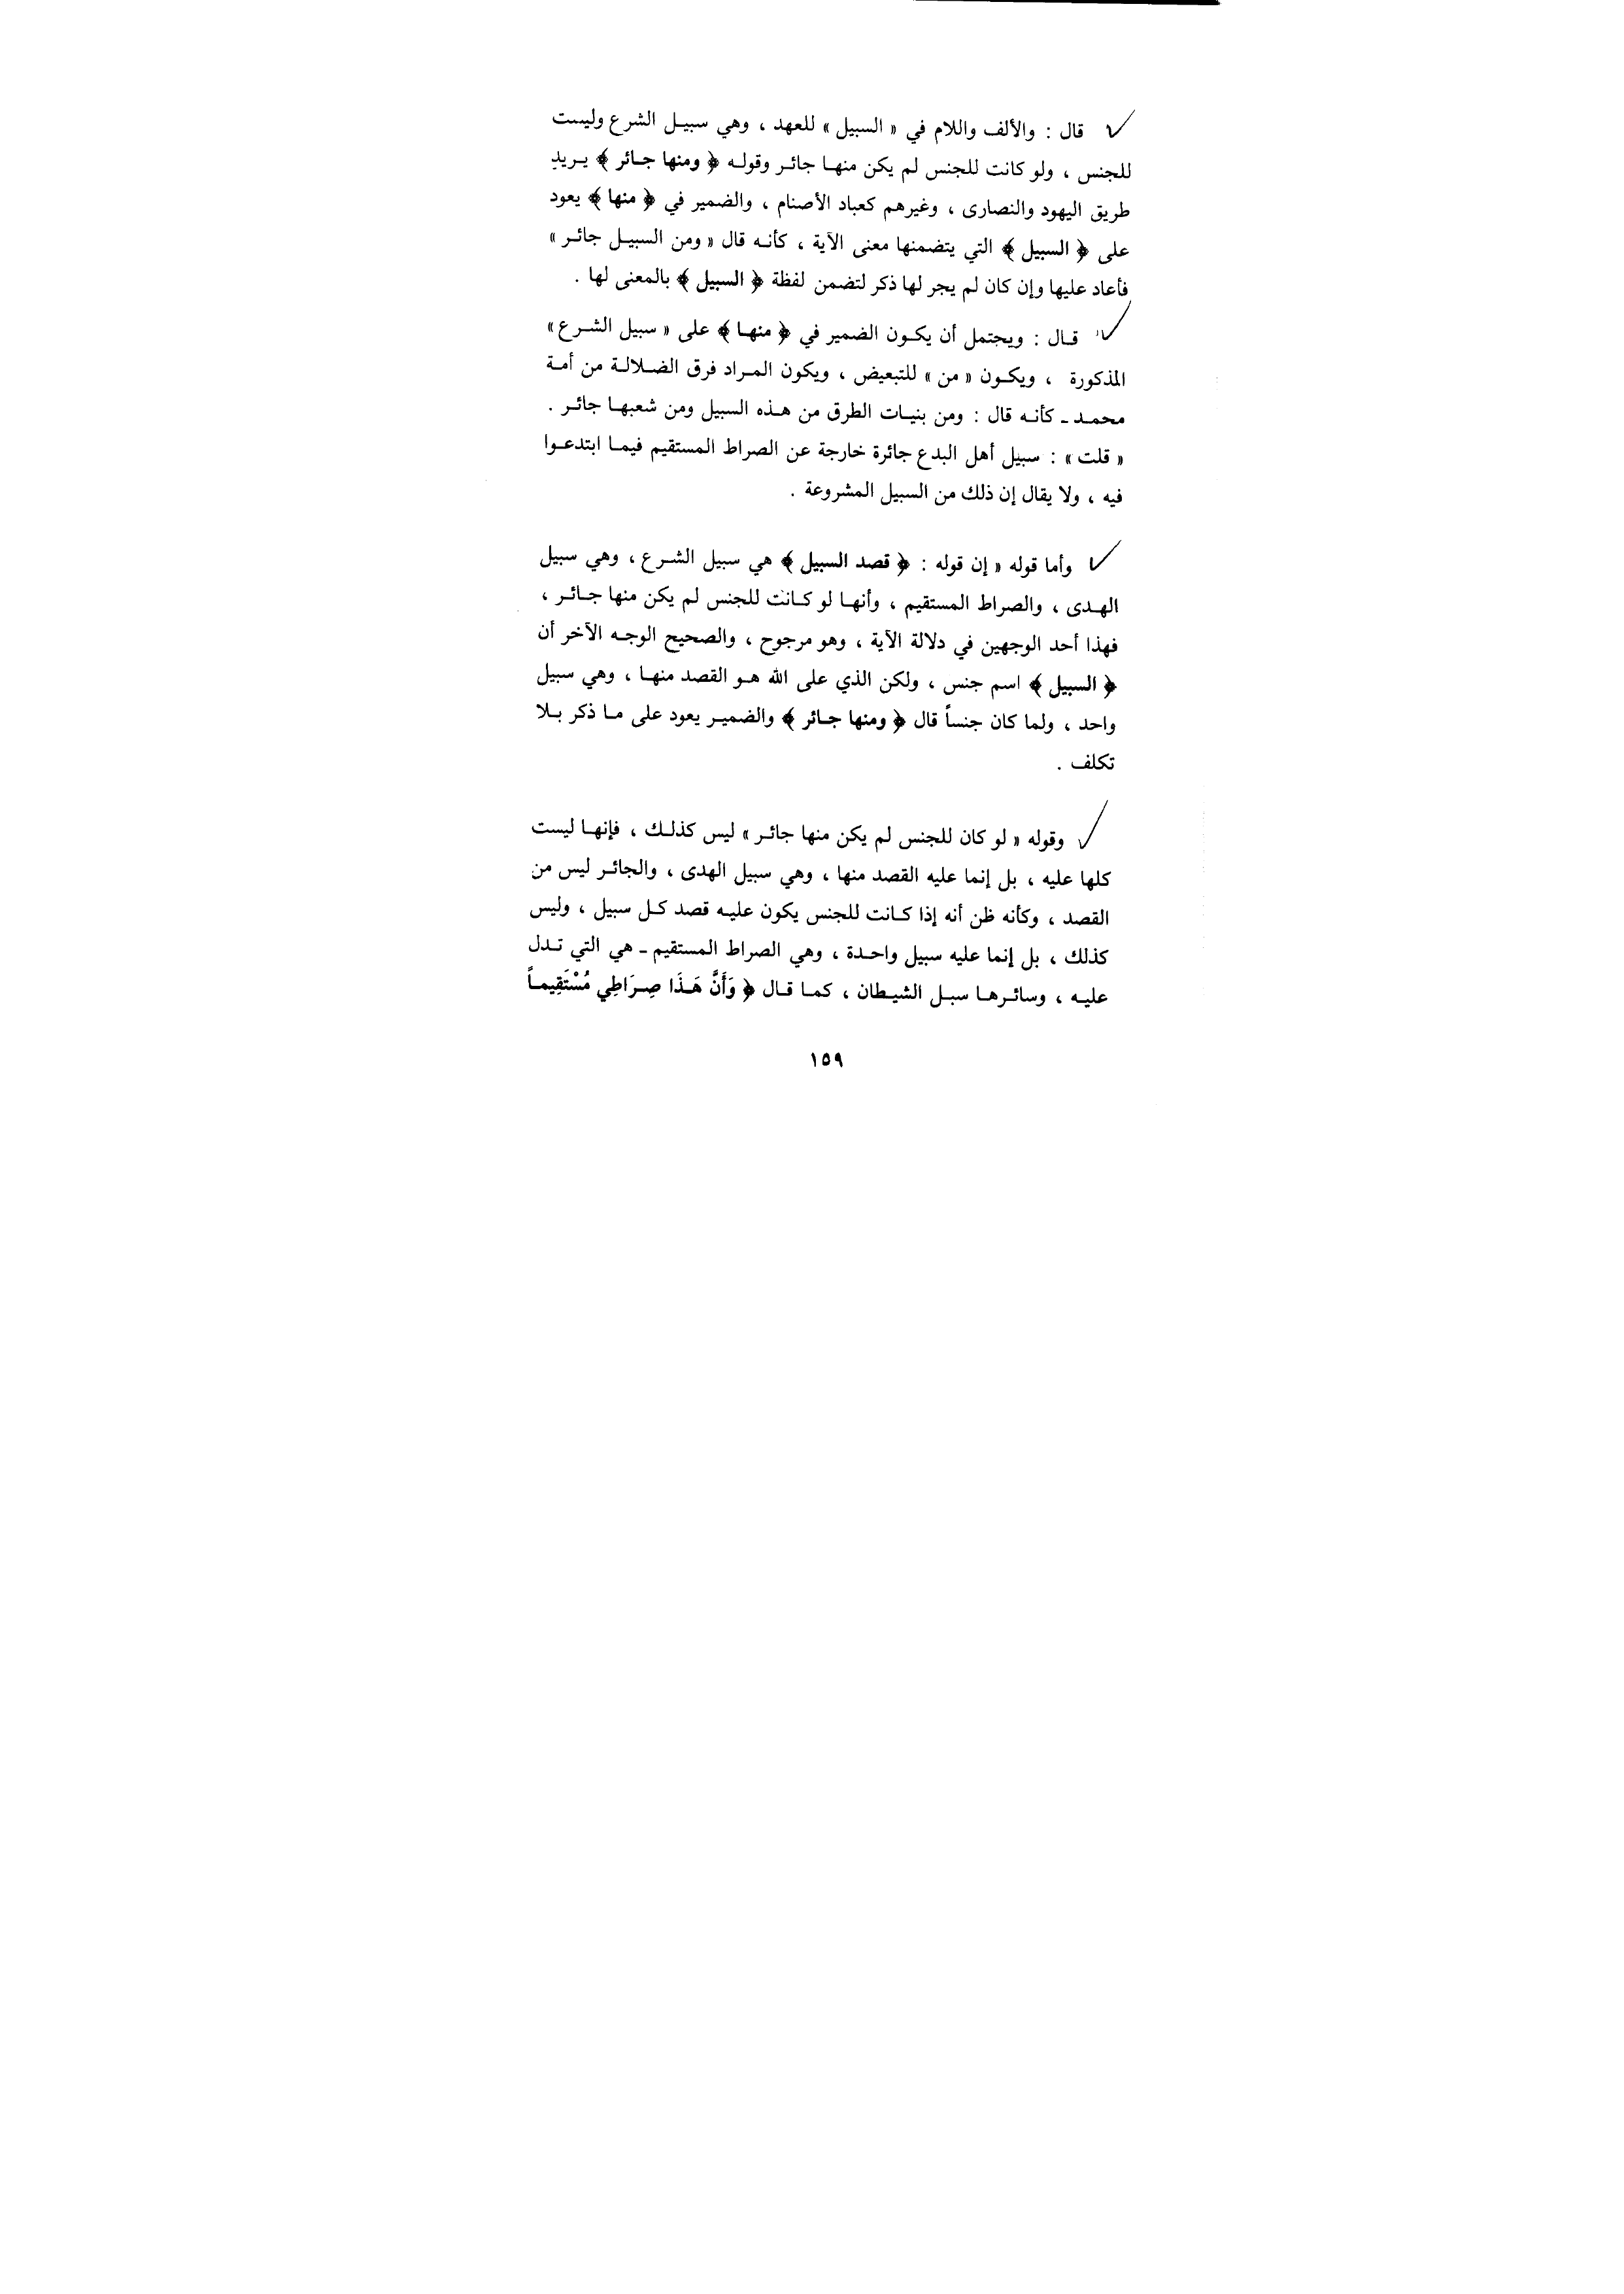 قال : والألف واللام في « السبيل » للعهد ، وهي سبيل الشرع وليست
للجنس ، ولو كانت للجنس لم يكن منها جائر وقوله ﴿ ومنها جائر ﴾ يريد
طريق اليهود والنصارى ، وغيرهم كعباد الأصنام ، والضمير في ﴿ منها ﴾ يعود
على ﴿ السبيل ﴾ التي يتضمنها معنى الآية ، كأنه قال « ومن السبيل جائر »
فأعاد عليها وإن كان لم يجر لها ذكر لتضمن لفظة ﴿ السبيل ﴾ بالمعنى لها .
قال : ويحتمل أن يكون الضمير في ﴿ منها ﴾ على « سبيل الشرع »
المذكورة ، ويكون « من » للتبعيض ، ويكون المراد فرق الضلالة من أمة
محمد ـ كأنه قال : ومن بنيات الطرق من هذه السبيل ومن شعبها جائر .
« قلت » : سبيل أهل البدع جائرة خارجة عن الصراط المستقيم فيما ابتدعوا
فيه ، ولا يقال إن ذلك من السبيل المشروعة .
وأما قوله « إن قوله : ﴿ قصد السبيل ﴾ هي سبيل الشرع ، وهي سبيل
الهدى ، والصراط المستقيم ، وأنها لو كانت للجنس لم يكن منها جائر ،
فهذا أحد الوجهين في دلالة الآية ، وهو مرجوح ، والصحيح الوجه الآخر أن
﴿ السبيل ﴾ اسم جنس ، ولكن الذي على الله هو القصد منها ، وهي سبيل
واحد ، ولما كان جنساً قال ﴿ ومنها جائر ﴾ والضمير يعود على ما ذكر بلا
تكلف .
وقوله « لو كان للجنس لم يكن منها جائر » ليس كذلك ، فإنها ليست
كلها عليه ، بل إنما عليه القصد منها ، وهي سبيل الهدى ، والجائر ليس من
القصد ، وكأنه ظن أنه إذا كانت للجنس يكون عليه قصد كل سبيل ، وليس
كذلك ، بل إنما عليه سبيل واحدة ، وهي الصراط المستقيم ـ هي التي تدل
عليه ، وسائرها سبل الشيطان ، كما قال ﴿ وَأَنَّ هَذَا صِرَاطِي مُسْتَقِيماً
١٥٩